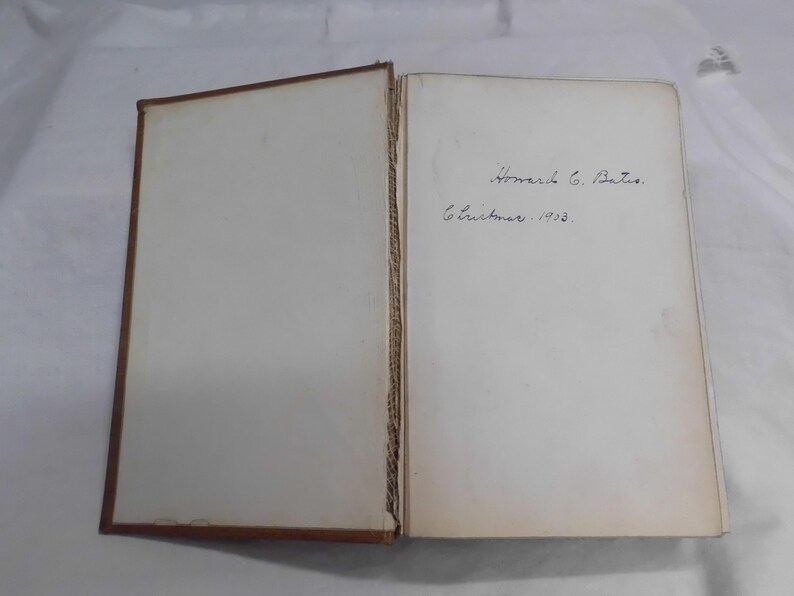 Howard C. Bates.
Christmas. 1903.